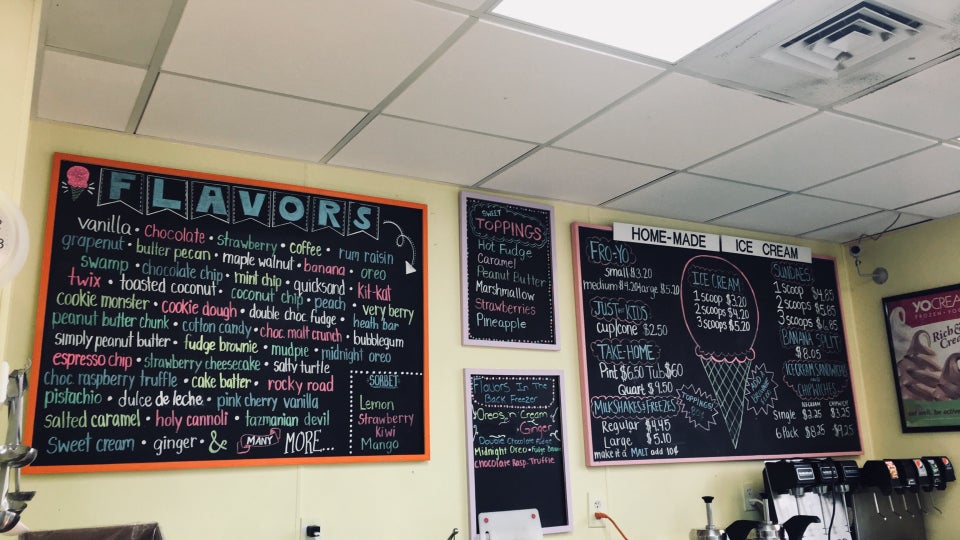 FLAVORS
vanilla • chocolate • strawberry • coffee • rum raisin
grapenut • butter pecan • maple walnut • banana • oreo
swamp • chocolate chip • mint chip • quicksand • kit-kat
twix • toasted coconut • coconut chip • peach • very berry
cookie monster • cookie dough • double choc fudge • heath bar
peanut butter chunk • cotton candy • choc malt crunch • bubblegum
simply peanut butter • fudge brownie • mudpie • midnight oreo
espresso chip • strawberry cheesecake • salty turtle
choc raspberry truffle • cake batter • rocky road
pistachio • dulce de leche • pink cherry vanilla
salted caramel • holy cannoli • tazmanian devil
sweet cream • ginger • & MANY MORE...
SORBET
Lemon
Strawberry
Kiwi
Mango
SWEET
TOPPINGS
Hot Fudge
Caramel
Peanut Butter
Marshmallow
Strawberries
Pineapple
Flavors In The
Back Freezer
Oreos n' Cream
Ginger
Double Chocolate Fudge
Midnight Oreo • Fudge Brownie
Chocolate Rasp. Truffle
HOME-MADE ICE CREAM
FRO-YO
small $3.20
medium $4.20 large $5.10
JUST-KIDS
cup/cone $2.50
TAKE-HOME
Pint $6.50 Tub $60
Quart $9.50
MILKSHAKES & FREEZES
Regular $4.95
Large $5.10
make it a MALT add 10¢
ICE CREAM
1 scoop $3.20
2 scoops $4.20
3 scoops $5.20
TOPPINGS
SUNDAES
1 scoop $4.85
2 scoops $5.85
3 scoops
BANANA SPLIT
$8.05
ICE CREAM SANDWICHES
and
CHIPWICHES
Single $3.25 $3.25
6 Pack $8.25 $9.25
YOCREAM
FROZEN
Rich &
Cre